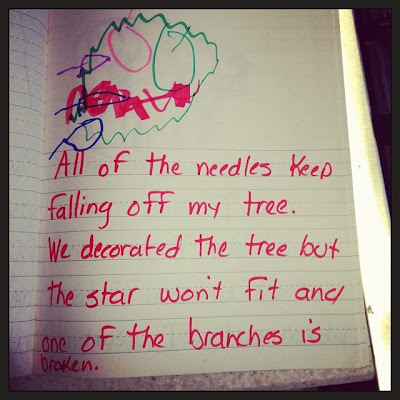 All of the needles keep
falling off my tree.
We decorated the tree but
the star won't fit and
one of the branches is
broken.